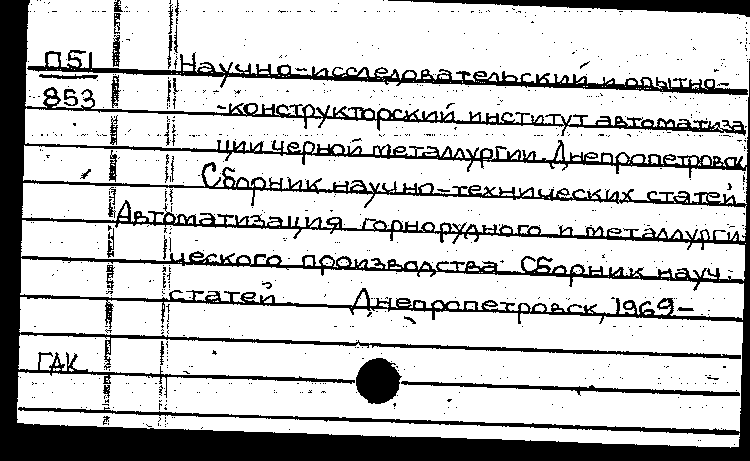 П51 Научно-исследовательский и опытно-
853 -конструкторский институт автоматиза
ции черной металлургии. Днепропетровск
Сборник научно-технических статей
Автоматизация горнорудного и металлурги
ческого производства. Сборник науч.
статей. Днепропетровск, 1969-
ГАК